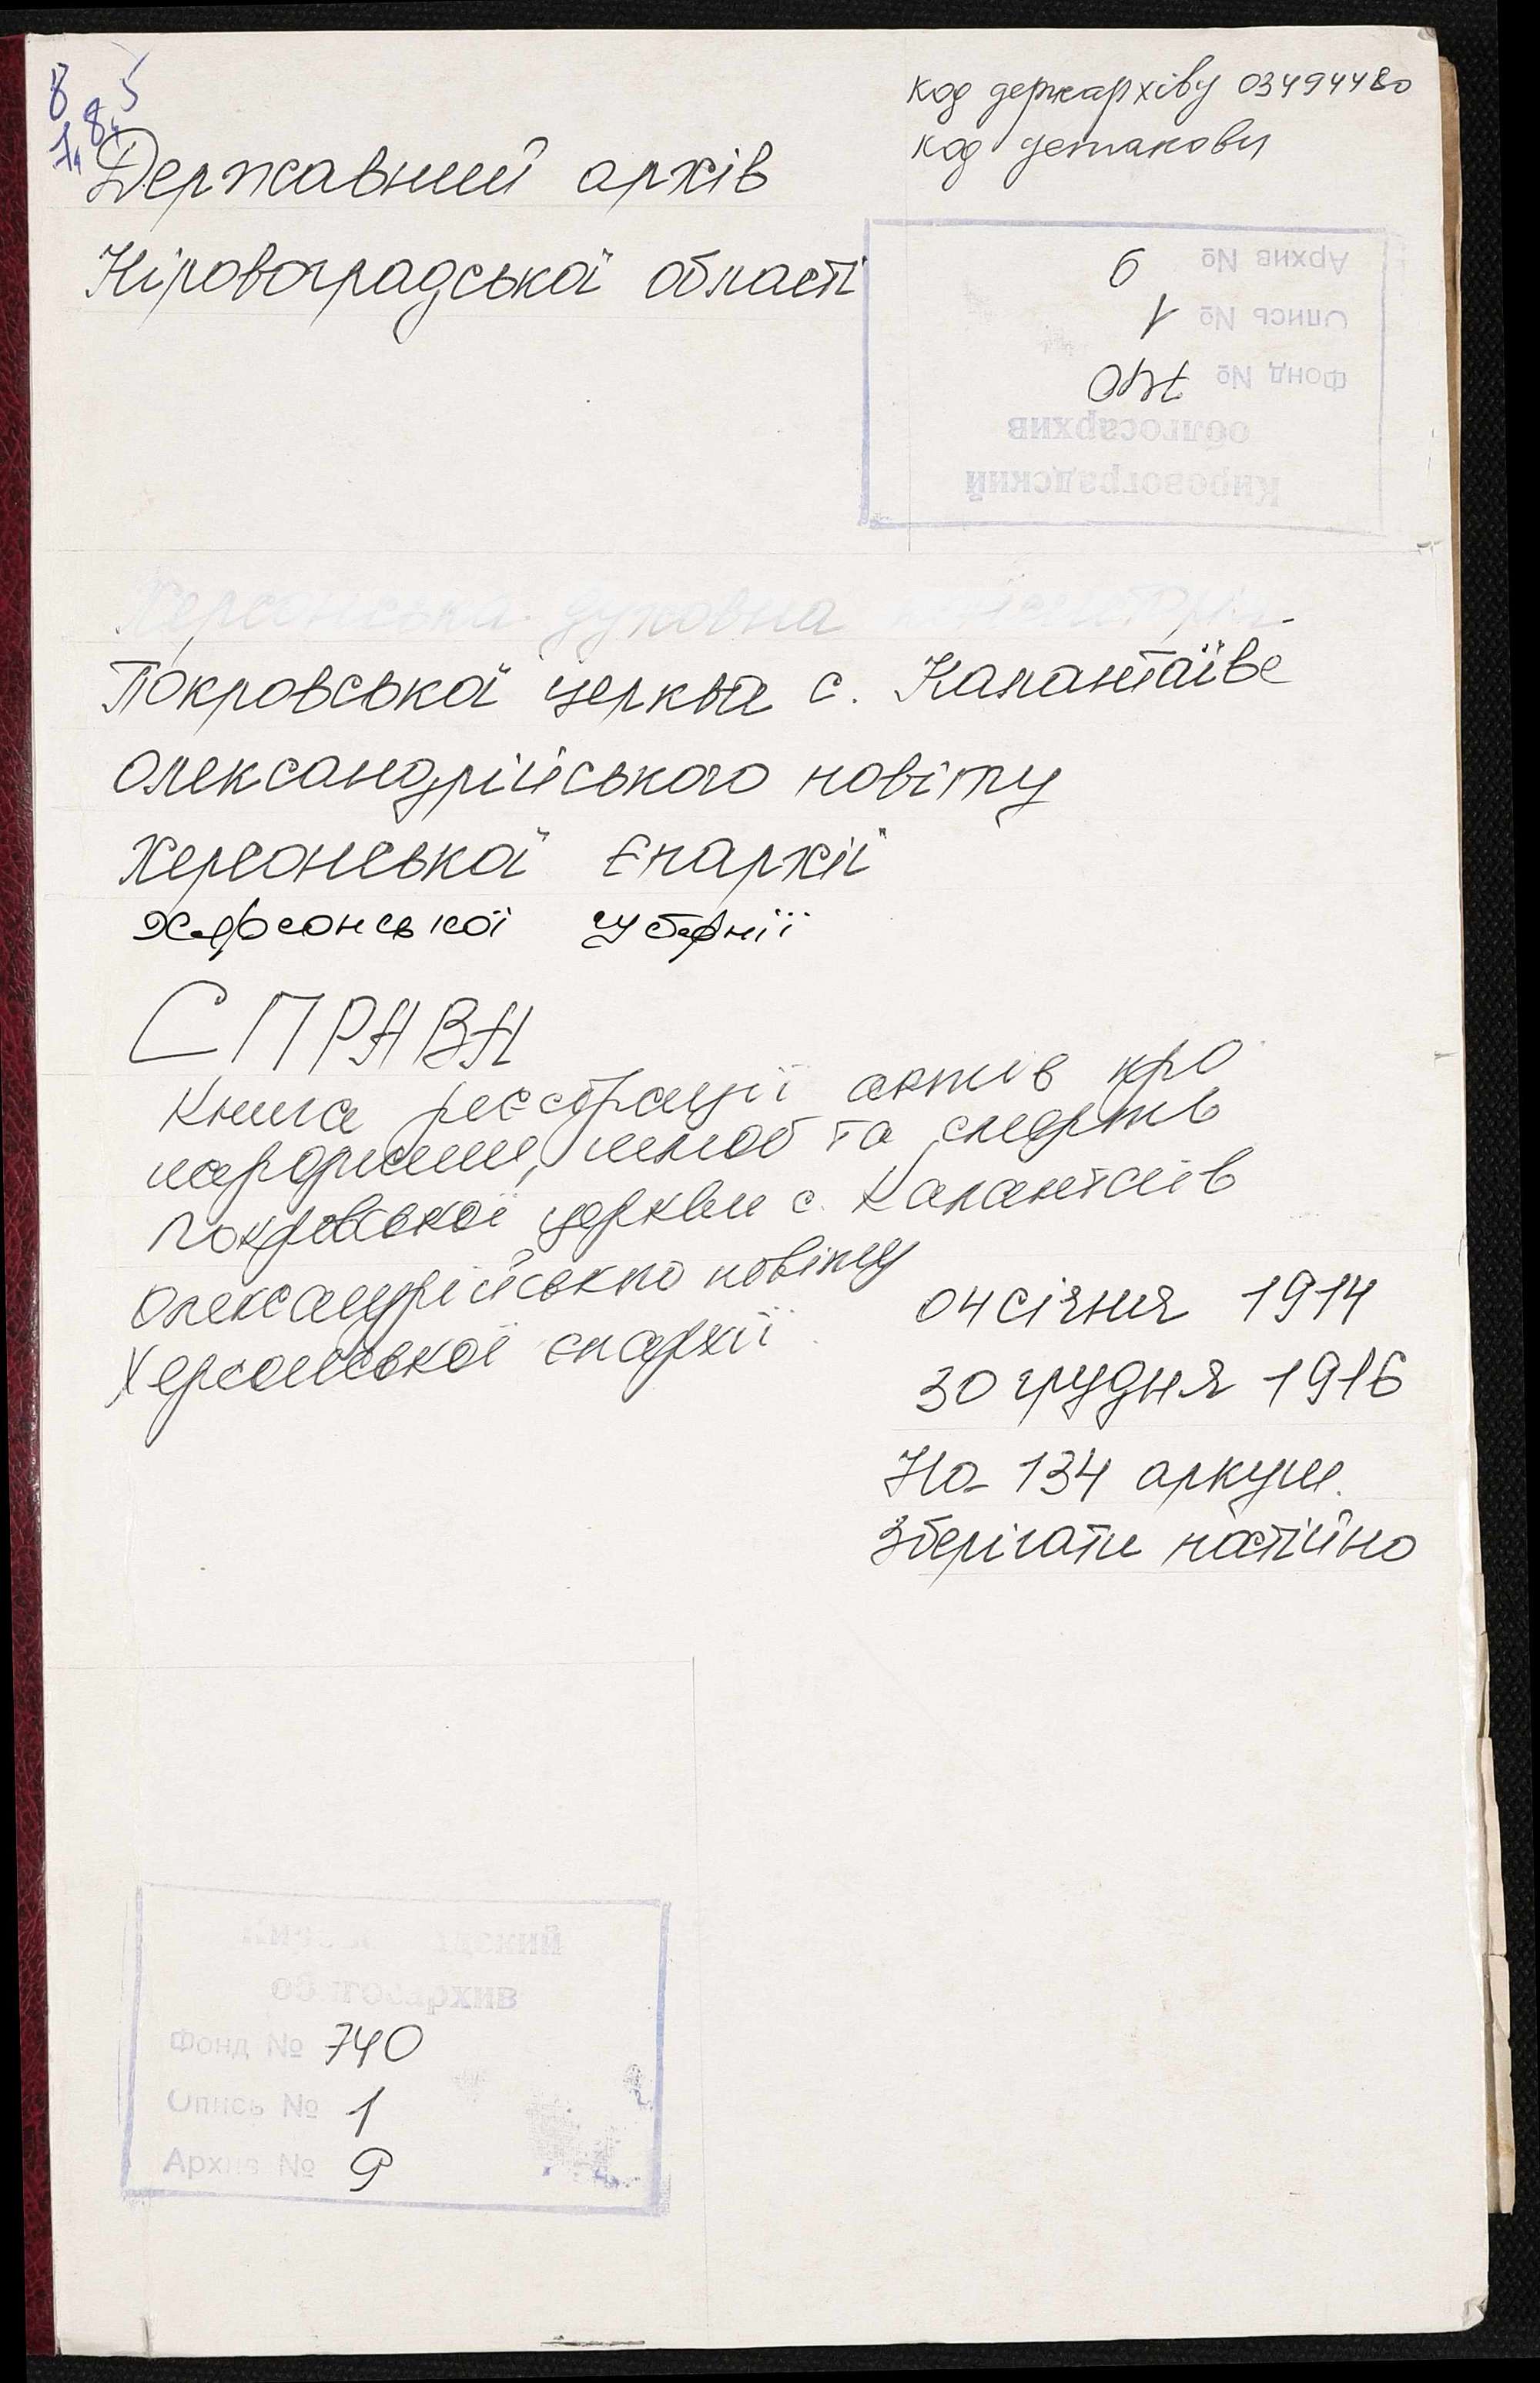 8 5
7, 8,
код держархіву 03494480
код установи
Державний архів
Кіровоградської області
Кировоградский
облгосархив
Фонд № 740
Опись № 1
Архив № 9
Херсонська духовна консисторія
Покровської церква с. Калантаїве
Олександрійського повіту
Херсонської Єпархії
Херсонської губернії
СПРАВА
Книга реєстрації актів про
народжен, шлюб та смерть
Покровської церкви с. Калантаїв
Олександрійського повіту
Херсонської єпархії
04 січня 1914
30 грудня 1916
На 134 аркуш.
Зберігати постійно
облгосархив
Фонд № 740
Опись № 1
Архив № 9